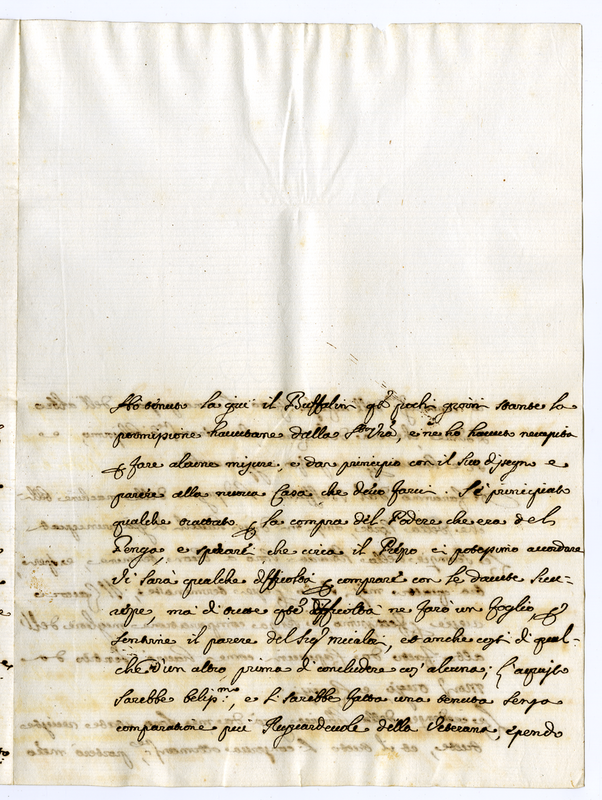 Ho tenuto la giù il Buffalin q.ti pochi giorni stante la
permissione havutane dalla S.ria V.ra, e ne ho havuto necessità
p fare alcune misure, e dar principio con il suo disegno e
parere alla nuova Casa che devo farci. Si è principiato
qualche trattato p la compra del Podere che era del
Fenga, e sperarei che circa il Prezzo ci potessimo accordare
Vi sarà qualche difficoltà p comprare con le dovute sicu-
rezze, ma di tutte q.te difficoltà ne farò un foglio, p
sentirne il parere del Sig.r Micali, et anche costì di qual-
che d'un altro prima di concludere cos' alcuna; L'acquisto
sarebbe beliss.mo, e si sarebbe fatta una tenuta senza
comparatione più riguardevole della Veterana, essendo